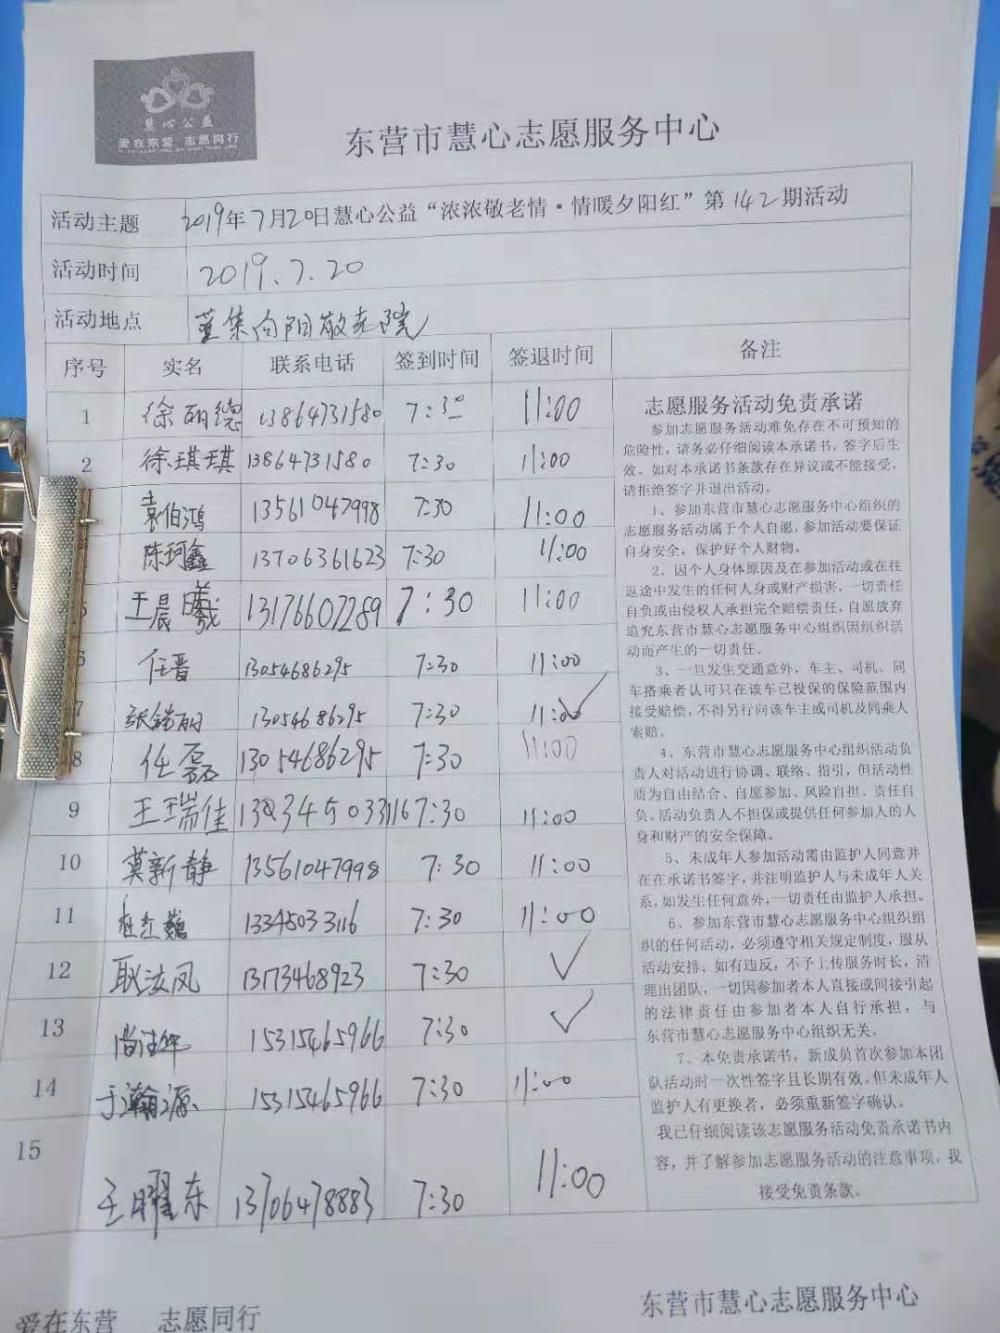 慧心公益
爱在东营 志愿同行
东营市慧心志愿服务中心
活动主题 2019年7月20日慧心公益“浓浓敬老情·情暖夕阳红”第142期活动
活动时间 2019.7.20
活动地点 董集向阳敬老院
序号 实名 联系电话 签到时间 签退时间 备注
1 徐丽德 13864731580 7:30 11:00
2 徐琪琪 13864731580 7:30 11:00
袁伯鸿 13561047998 7:30 11:00
陈珂鑫 13706361623 7:30 11:00
5 王晨曦 13176607289 7:30 11:00
6 任晋 13054686295 7:30 11:00
7 13054686295 7:30 11:00
8 任磊 13054686295 7:30 11:00
9 王瑞佳 7:30 11:00
10 莫新静 13561047998 7:30 11:00
11 13345033116 7:30 11:00
12 耿凤 13173468923 7:30 ✓
13 15315465966 7:30 ✓
14 于瀚源 15315465966 7:30 11:00
15 王曜东 13706478883 7:30 11:00
志愿服务活动免责承诺
参加志愿服务活动难免存在不可预知的
危险性，请务必仔细阅读本承诺书，签字后生
效。如对本承诺书条款存在异议或不能接受，
请拒绝签字并退出活动。
1、参加东营市慧心志愿服务中心组织的
志愿服务活动属于个人自愿，参加活动要保证
自身安全，保护好个人财物。
2、因个人身体原因及在参加活动或在往
返途中发生的任何人身或财产损害，一切责任
自负或由侵权人承担完全赔偿责任，自愿放弃
追究东营市慧心志愿服务中心组织因组织活
动而产生的一切责任。
3、一旦发生交通意外，车主、司机、同
车搭乘者认可只在该车已投保的保险范围内
接受赔偿，不得另行向该车主或司机及同乘人
索赔。
4、东营市慧心志愿服务中心组织活动负
责人对活动进行协调、联络、指引，但活动性
质为自由结合、自愿参加、风险自担、责任自
负。活动负责人不担保或提供任何参加人的人
身和财产的安全保障。
5、未成年人参加活动需由监护人同意并
在在承诺书签字，并注明监护人与未成年人关
系，如发生任何意外，一切责任由监护人承担。
6、参加东营市慧心志愿服务中心组织组
织的任何活动，必须遵守相关规定制度，服从
活动安排，如有违反，不予上传服务时长，清
理出团队，一切因参加者本人直接或间接引起
的法律责任由参加者本人自行承担，与
东营市慧心志愿服务中心组织无关。
7、本免责承诺书，新成员首次参加本团
队活动时一次性签字且长期有效。但未成年人
监护人有更换者，必须重新签字确认。
我已仔细阅读该志愿服务活动免责承诺书内
容，并了解参加志愿服务活动的注意事项，我
接受免责条款。
爱在东营 志愿同行 东营市慧心志愿服务中心